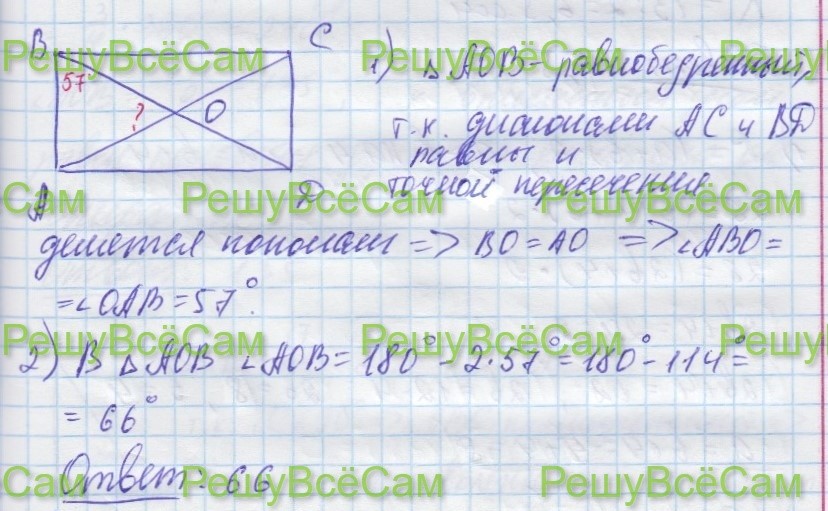 B C
57°
?
O
A Д
1) △ AOB - равнобедренный,
т.к. диагонали AC и BД
равны и
точкой пересечения
делятся пополам => BO = AO => ∠ABO =
= ∠OAB = 57°.
2) В △ AOB ∠AOB = 180° - 2·57° = 180° - 114° =
= 66°
Ответ: 66
РешуВсёСам РешуВсёСам РешуВсём
Сам РешуВсёСам РешуВсёСам
РешуВсёСам РешуВсёСам РешуВсём
Сам РешуВсёСам РешуВсёСам